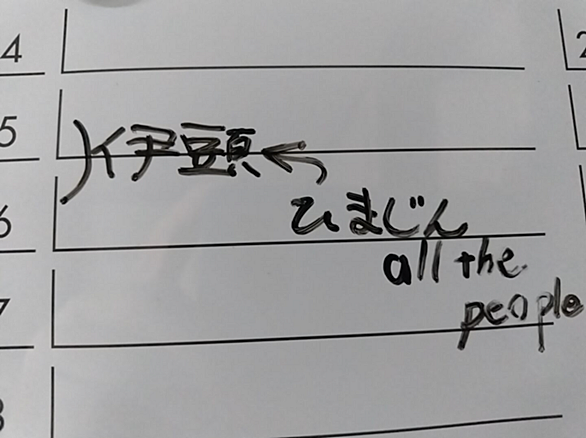 4
5
伊豆頭←
6
ひまじん
all the
people
7